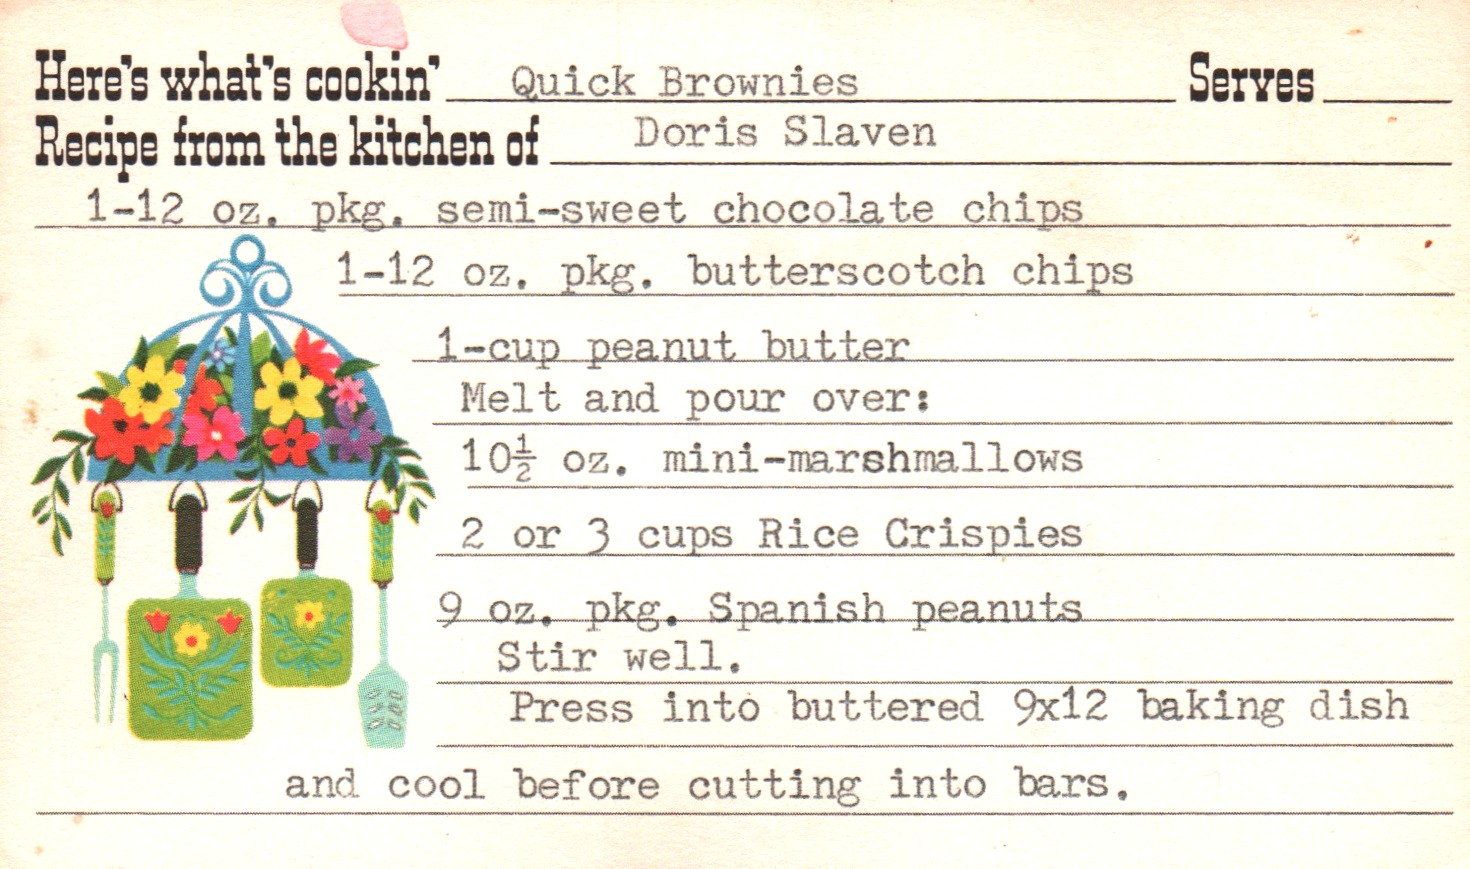 Here's what's cookin' Quick Brownies Serves
Recipe from the kitchen of Doris Slaven
1-12 oz. pkg. semi-sweet chocolate chips
1-12 oz. pkg. butterscotch chips
1-cup peanut butter
Melt and pour over:
10½ oz. mini-marshmallows
2 or 3 cups Rice Crispies
9 oz. pkg. Spanish peanuts
Stir well.
Press into buttered 9x12 baking dish
and cool before cutting into bars.